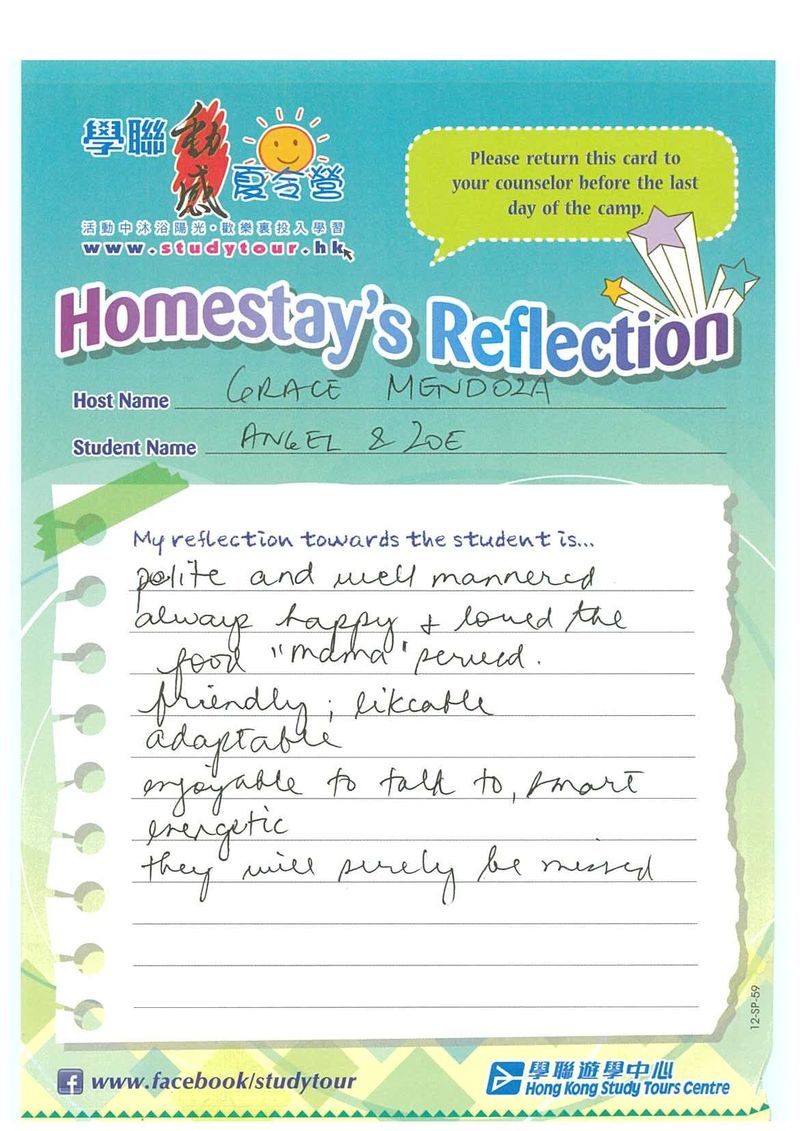 學聯 動感 夏令營
活動中沐浴陽光•歡樂裏投入學習
www.studytour.hk
Please return this card to
your counselor before the last
day of the camp.
Homestay's Reflection
Host Name GRACE MENDOZA
Student Name ANGEL & ZOE
My reflection towards the student is...
polite and well mannered
always happy & loved the
food "mama" served.
friendly; likeable
adaptable
enjoyable to talk to, smart
energetic
they will surely be missed
12-SP-59
www.facebook/studytour
學聯遊學中心
Hong Kong Study Tours Centre